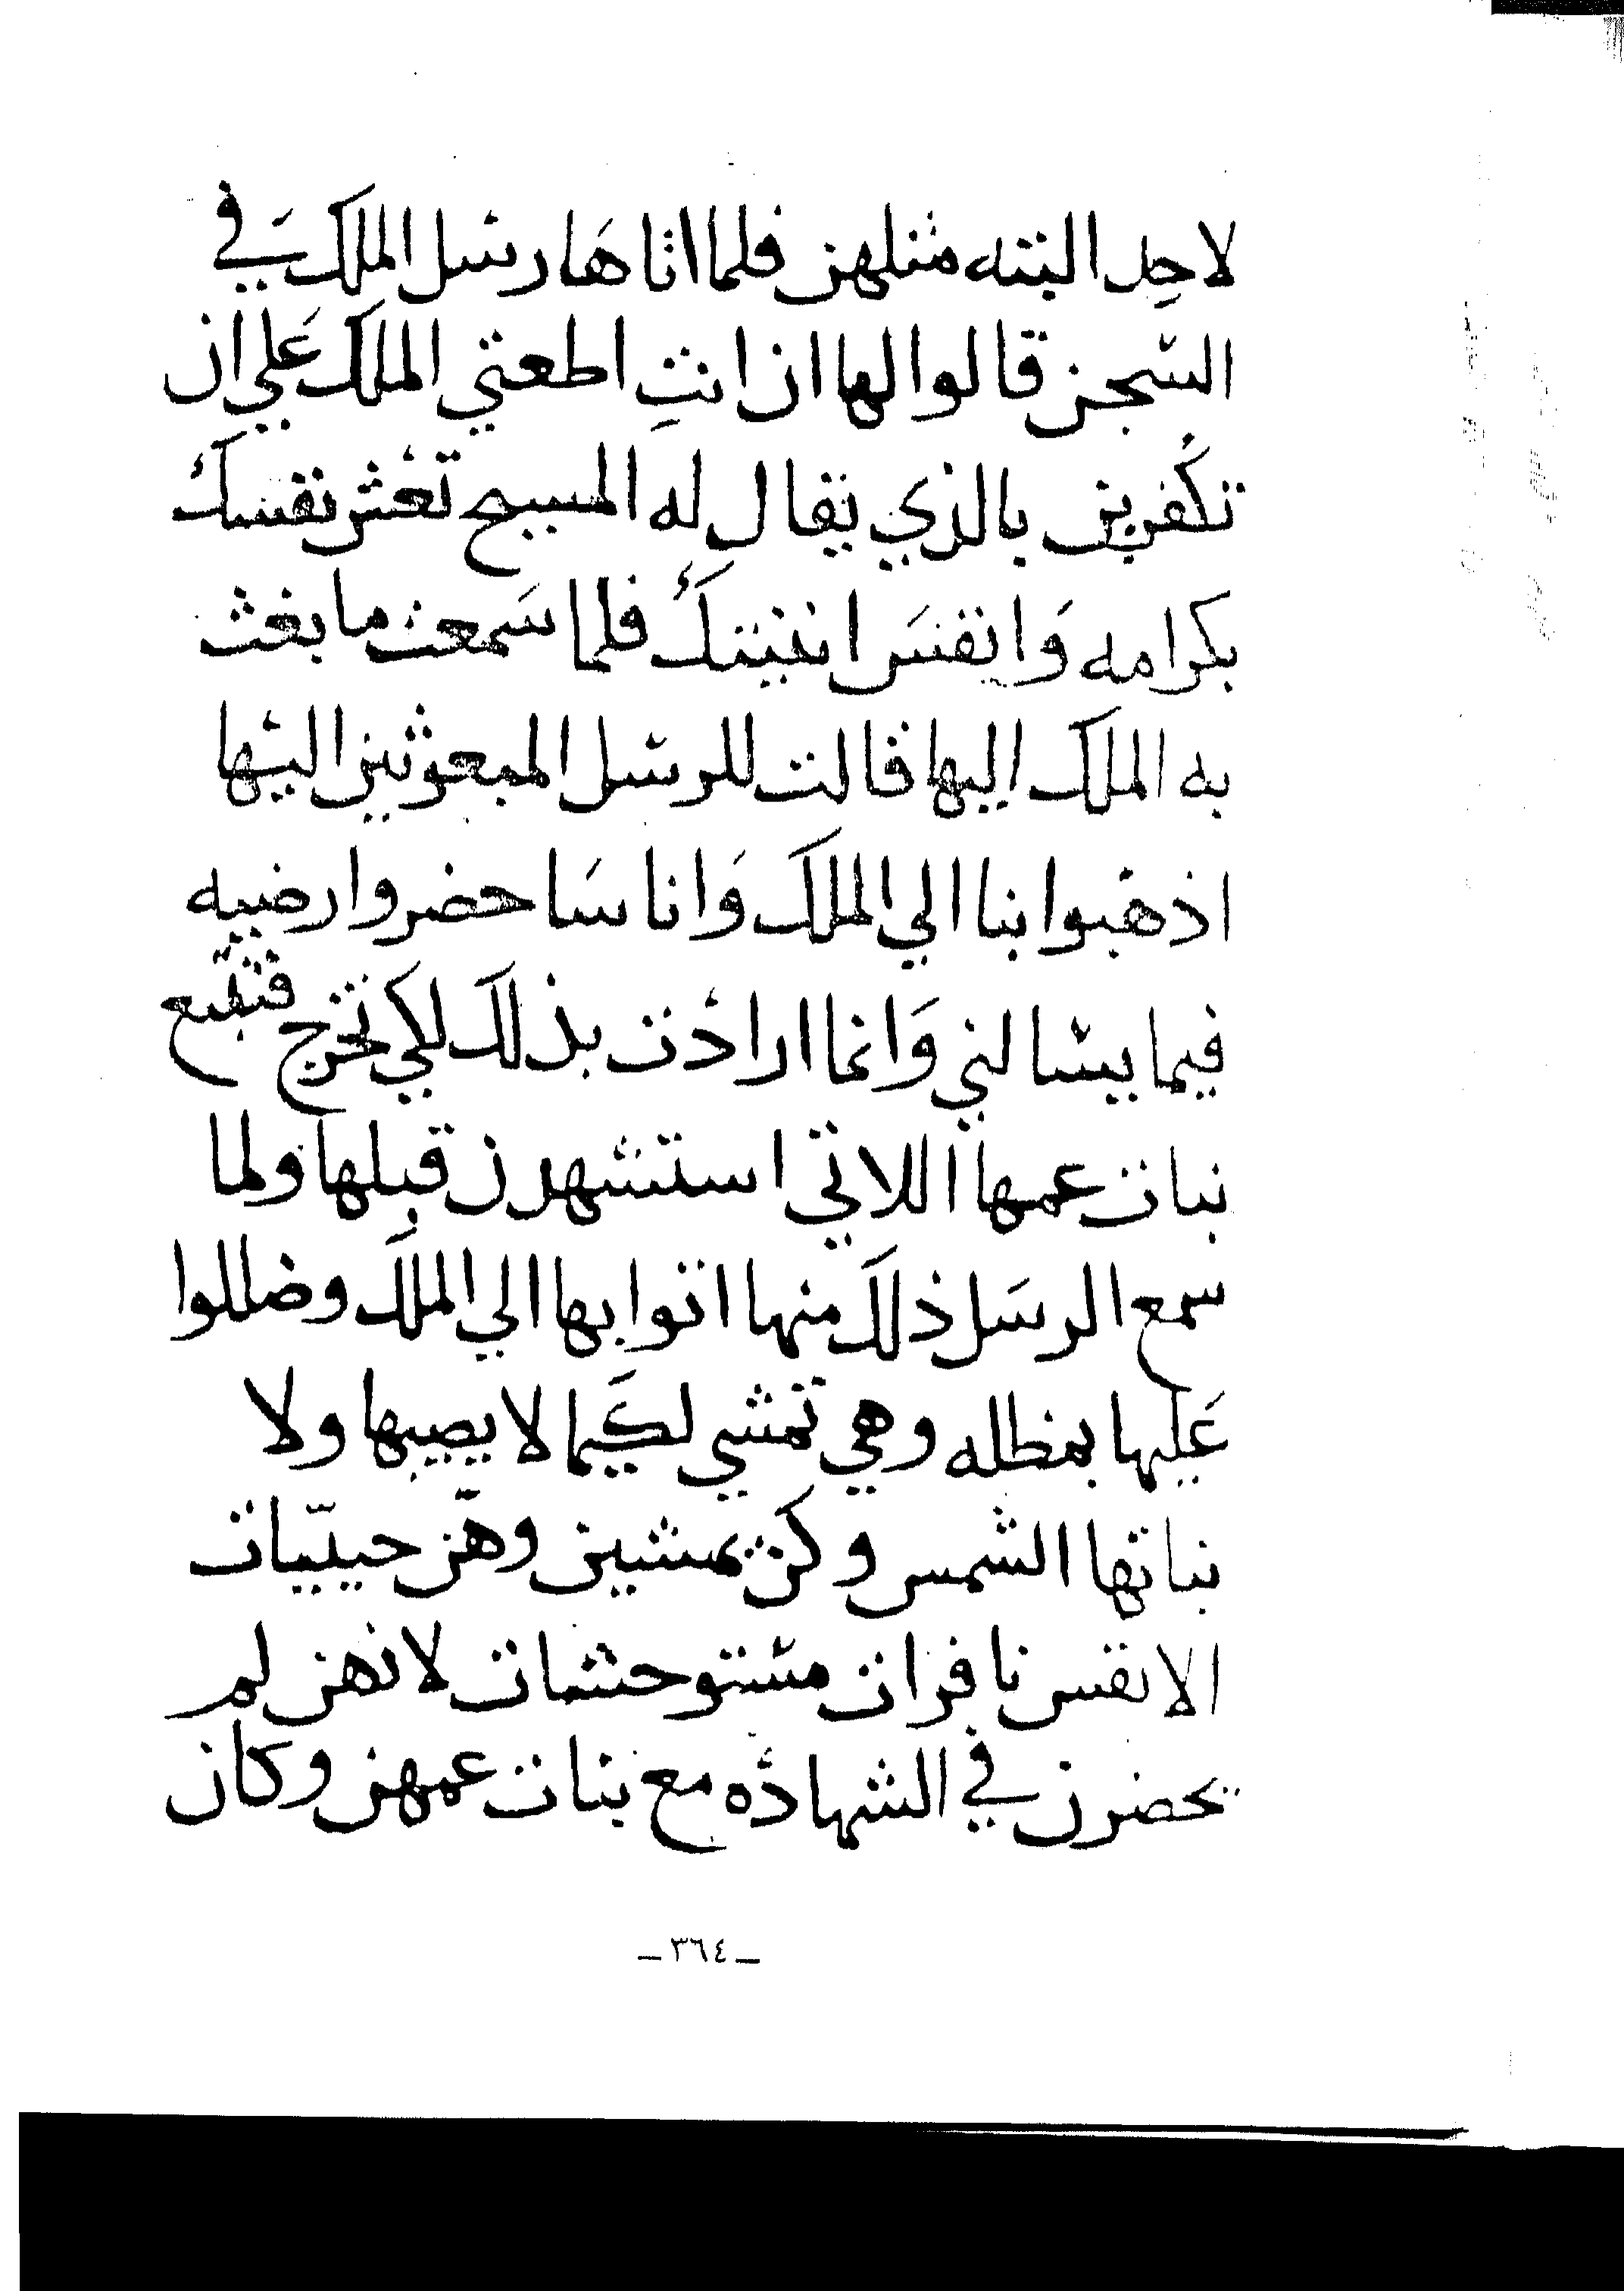 لاحد البته مثلهن فلما اتاها رسل الملك في
السجن قالوا لها ان انتِ اطعتي الملك علي ان
تكفرين بالذي يقال له المسيح تعش نفسك
بكرامه وانفس ابنيتك فلما سمعت ما بعث
به الملك اليها قالت للرسل المبعوثين اليها
اذهبوا بنا الي الملك وانا ساحضر وارضيه
فيما يسالني وانما ارادت بذلك لكي تخرج فتتبع
بنات عمها اللاتي استشهدن قبلها ولما
سمع الرسل ذلك منها اتوا بها الي الملك وضللوا
عليها بمظله وهي تمشي لكيما لا يصيبها ولا
بناتها الشمس وكن يمشين وهّن حييّات
الانفس نافرات مستوحشات لانهن لم
يحضرن في الشهاده مع بنات عمهن وكان
ـ ٣٦٤ ـ